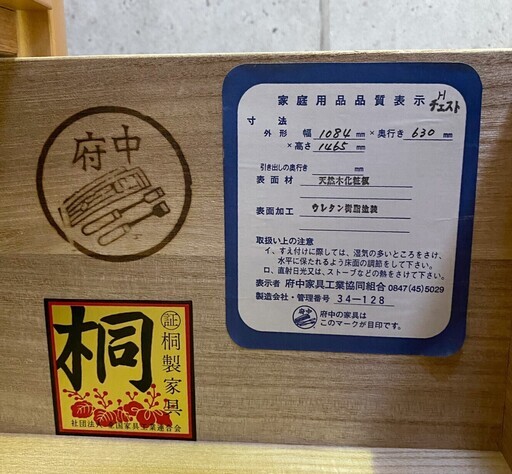 府中
家庭用品品質表示
Hチェスト
寸法
外形 幅 1084 mm×奥行き 630 mm
×高さ 1465 mm
引き出しの奥行き mm
表面材 天然木化粧板
表面加工 ウレタン樹脂塗装
取扱い上の注意
イ、すえ付けに際しては、湿気の多いところをさけ、
水平に保たれるよう床面の調節をして下さい。
ロ、直射日光又は、ストーブなどの熱をさけて下さい。
表示者 府中家具工業協同組合 0847(45)5029
製造会社・管理番号 34-128
府中
府中の家具は
このマークが目印です。
桐
証 桐製家具
社団法人 全国家具工業連合会